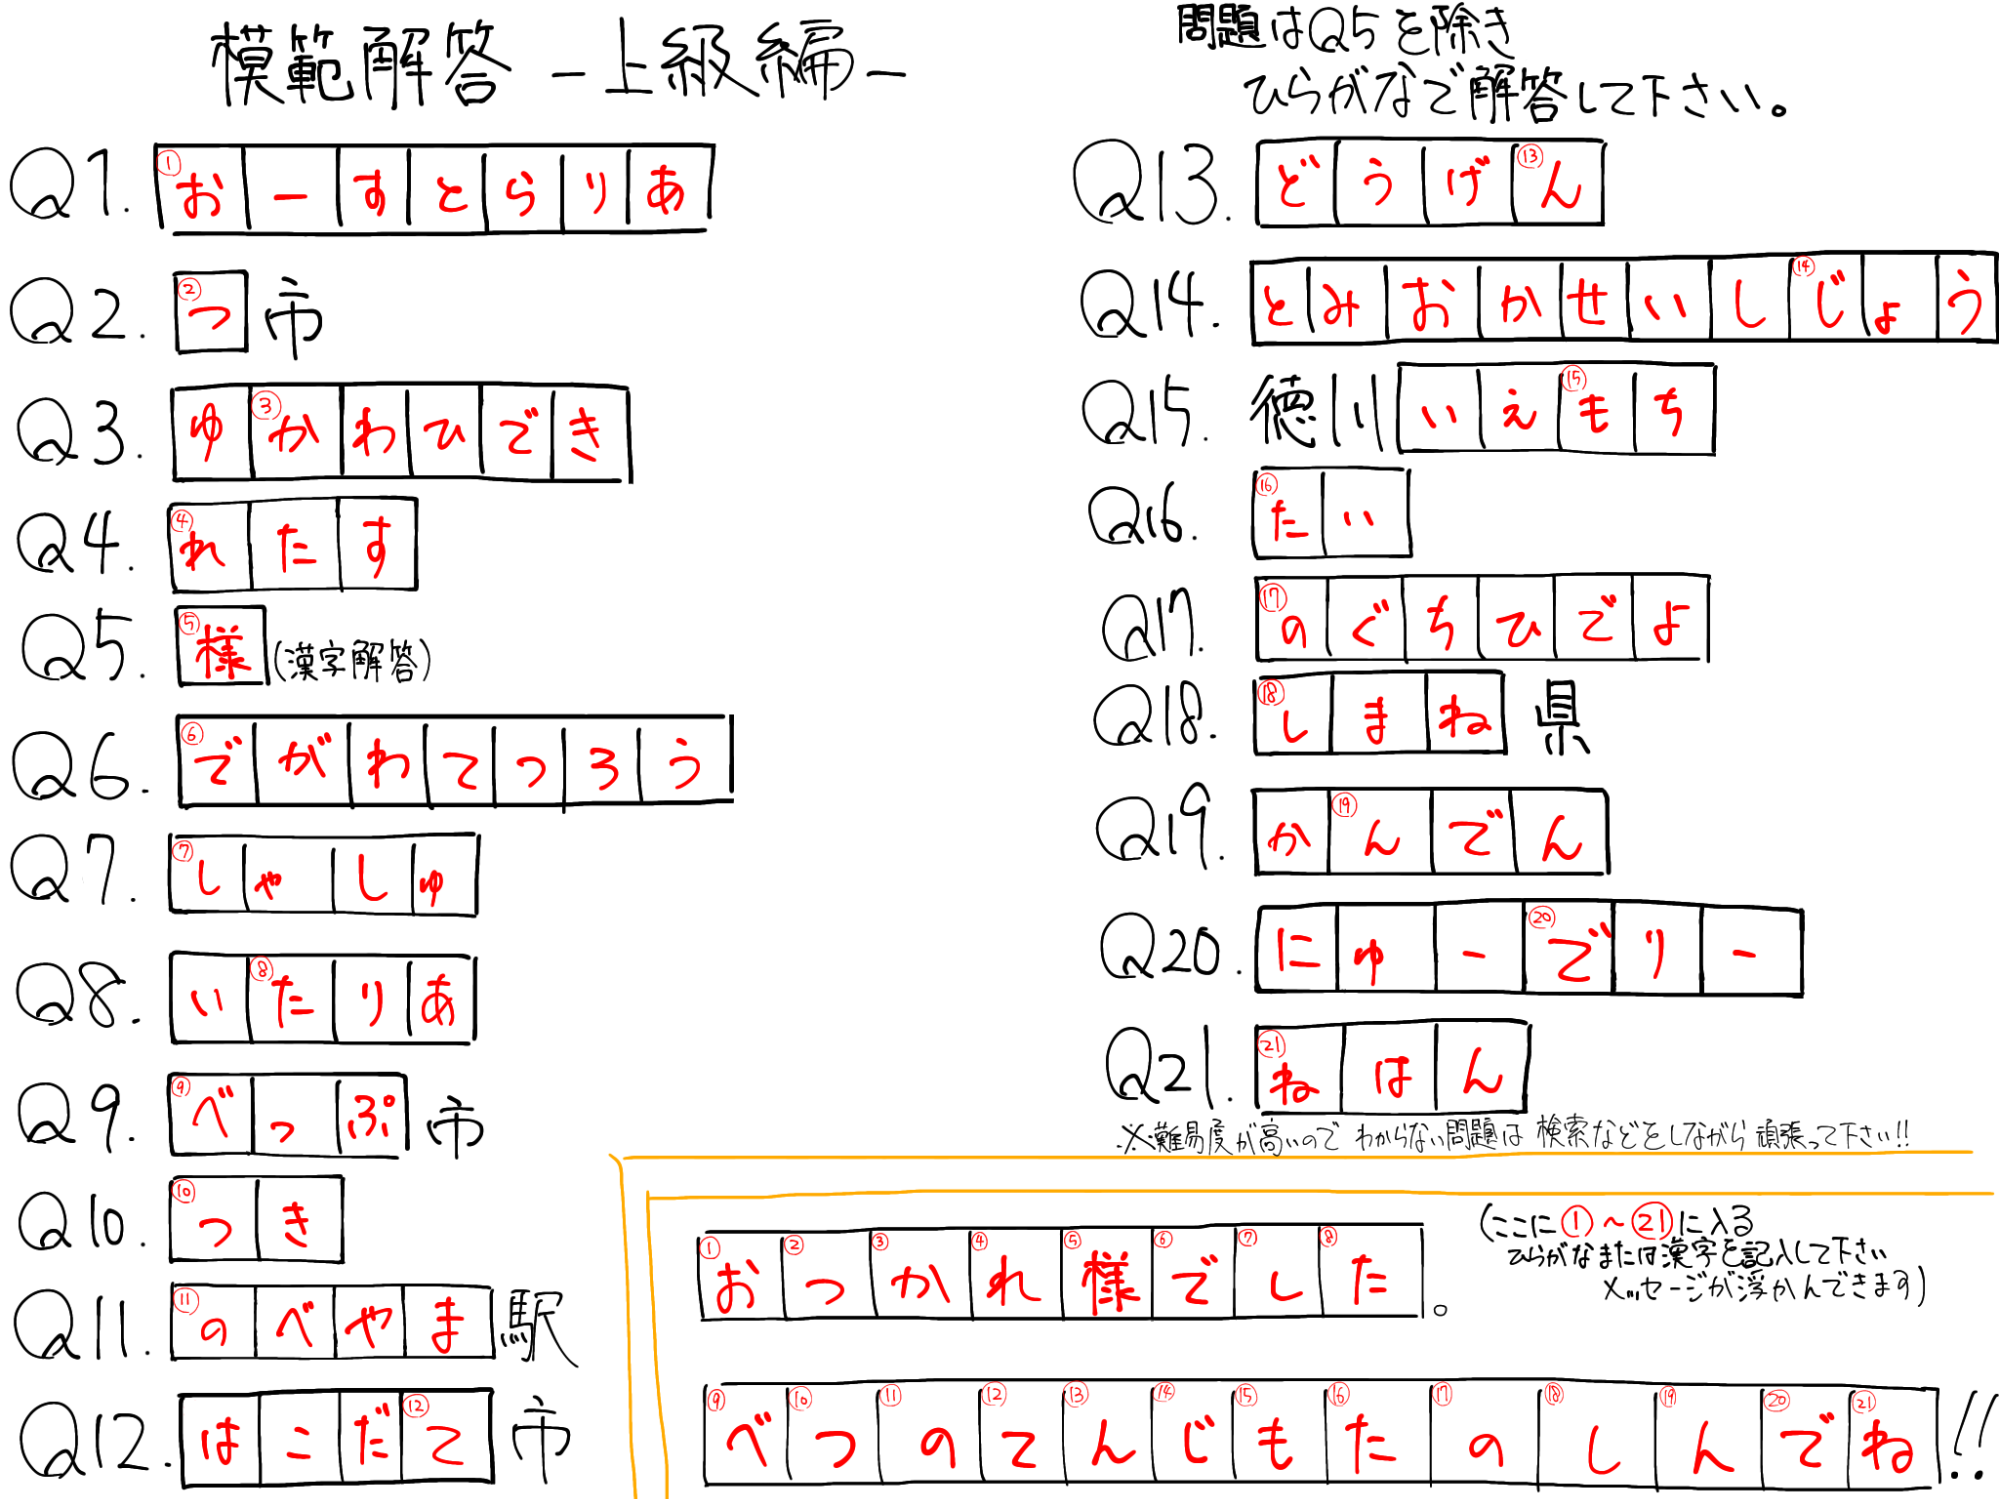 模範解答 -上級編-
問題はQ5を除き
ひらがなで解答して下さい。
Q1. ①おーすとらりあ
Q2. ②つ市
Q3. ゆ③かわひでき
Q4. ④れたす
Q5. ⑤様(漢字解答)
Q6. ⑥でがわてつろう
Q7. ⑦しゃしゅ
Q8. い⑧たりあ
Q9. ⑨べっぷ市
Q10. ⑩つき
Q11. ⑪のべやま駅
Q12. はこだ⑫て市
Q13. どうげ⑬ん
Q14. とみおかせいし⑭じょう
Q15. 徳川いえ⑮もち
Q16. ⑯たい
Q17. ⑰のぐちひでよ
Q18. ⑱しまね県
Q19. か⑲んでん
Q20. にゅー⑳でりー
Q21. ㉑ねはん
※難易度が高いので わからない問題は 検索などをしながら 頑張って下さい!!
(ここに①~㉑に入る
ひらがなまたは漢字を記入して下さい
メッセージが浮かんできます)
①お②つ③か④れ⑤様⑥で⑦し⑧た。
⑨べ⑩つ⑪の⑫て⑬ん⑭じ⑮も⑯た⑰の⑱し⑲ん⑳で㉑ね!!